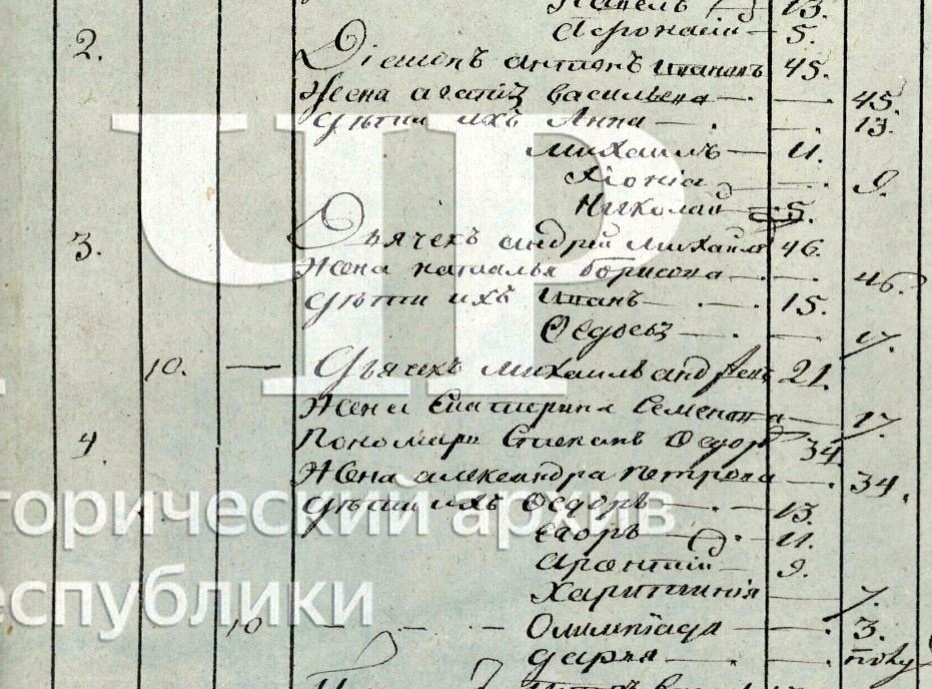 Павелъ 13.
2. Афонасiй — 5.
Дiаконъ антонъ ивановъ 45.
Жена агафiя васильева — 45.
Дѣти ихъ Анна — 13.
Михаилъ — 11.
Хiонiа — 9.
Николай — 5.
3. Дьячекъ андрей михайловъ 46.
Жена наталья борисова — 46.
Дѣти ихъ иванъ — 15.
Федосья —
10. — Дьячекъ михаилъ андреевъ 21.
Жена Екатерина Семенова — 17.
4. Пономарь Степанъ Федоровъ 34.
Жена александра петрова — 34.
Дѣти ихъ Федоръ — 13.
Егоръ — 11.
9.
Харитинiя — 7.
10 — Олимпiада — 3.
дарья — полу
ЧР
торический архив
еспублики